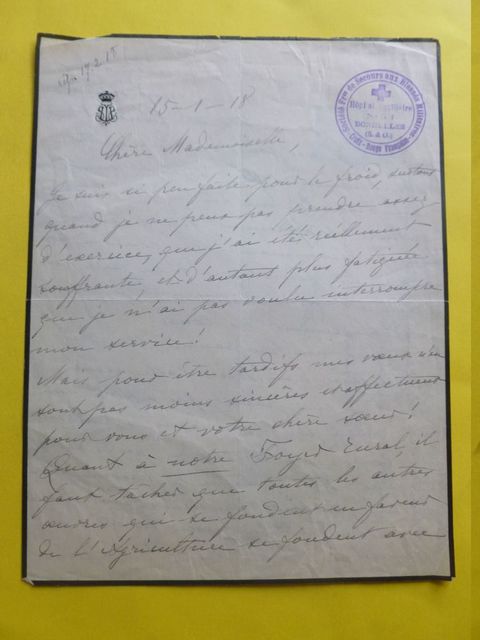 17.2.18
15-1-18
Société Fse de Secours aux Blessés Militaires
Croix-Rouge Française
Hôpital Auxiliaire
(S.&O.)
Chère Mademoiselle,
Je suis si peu faite pour le froid, surtout
quand je ne peux pas prendre assez
d'exercice, que j'ai été réellement
souffrante, et d'autant plus fatiguée
que je n'ai pas voulu interrompre
mon service!
Mais pour être tardifs mes vœux n'en
sont pas moins sincères et affectueux
pour vous et votre chère sœur!
Quant à notre Foyer Rural, il
faut tâcher que toutes les autres
œuvres qui se fondent en faveur
de l'Agriculture se fondent avec